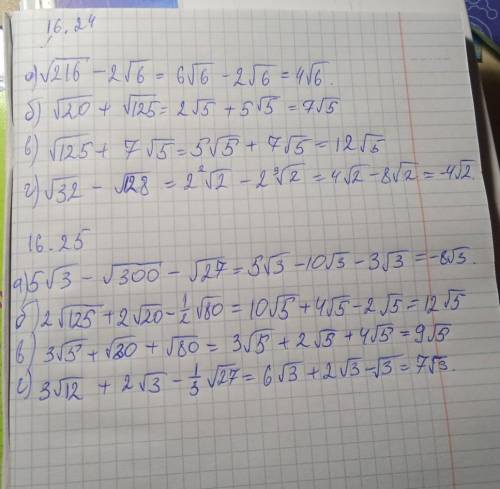 16.24
а) √216 - 2√6 = 6√6 - 2√6 = 4√6.
б) √20 + √125 = 2√5 + 5√5 = 7√5
в) √125 + 7√5 = 5√5 + 7√5 = 12√5
г) √32 - √128 = 2²√2 - 2³√2 = 4√2 - 8√2 = -4√2.
16.25
а) 5√3 - √300 - √27 = 5√3 - 10√3 - 3√3 = -8√3.
б) 2√125 + 2√20 - 1/2√80 = 10√5 + 4√5 - 2√5 = 12√5
в) 3√5 + √20 + √80 = 3√5 + 2√5 + 4√5 = 9√5
г) 3√12 + 2√3 - 1/3√27 = 6√3 + 2√3 - √3 = 7√3.